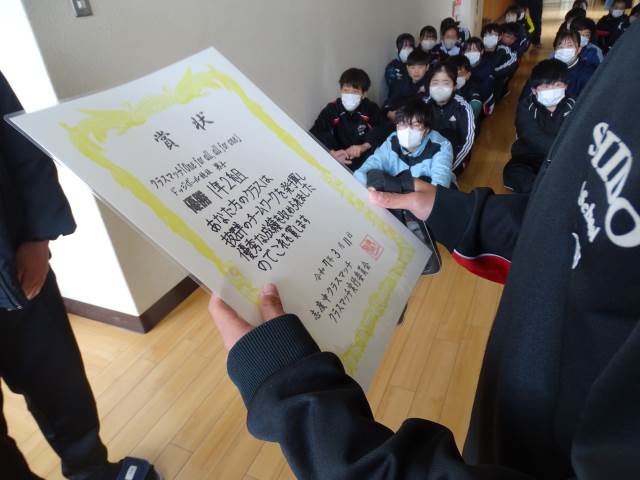 賞状
クラスマッチ(one for all, all for one)
ドッジボールの部 男子
優勝 1年2組
あなた方のクラスは
抜群のチームワークを発揮し
優秀な成績を収められました
のでこれを賞します
令和7年3月11日
志度中クラスマッチ
クラスマッチ実行委員会
SHIDO